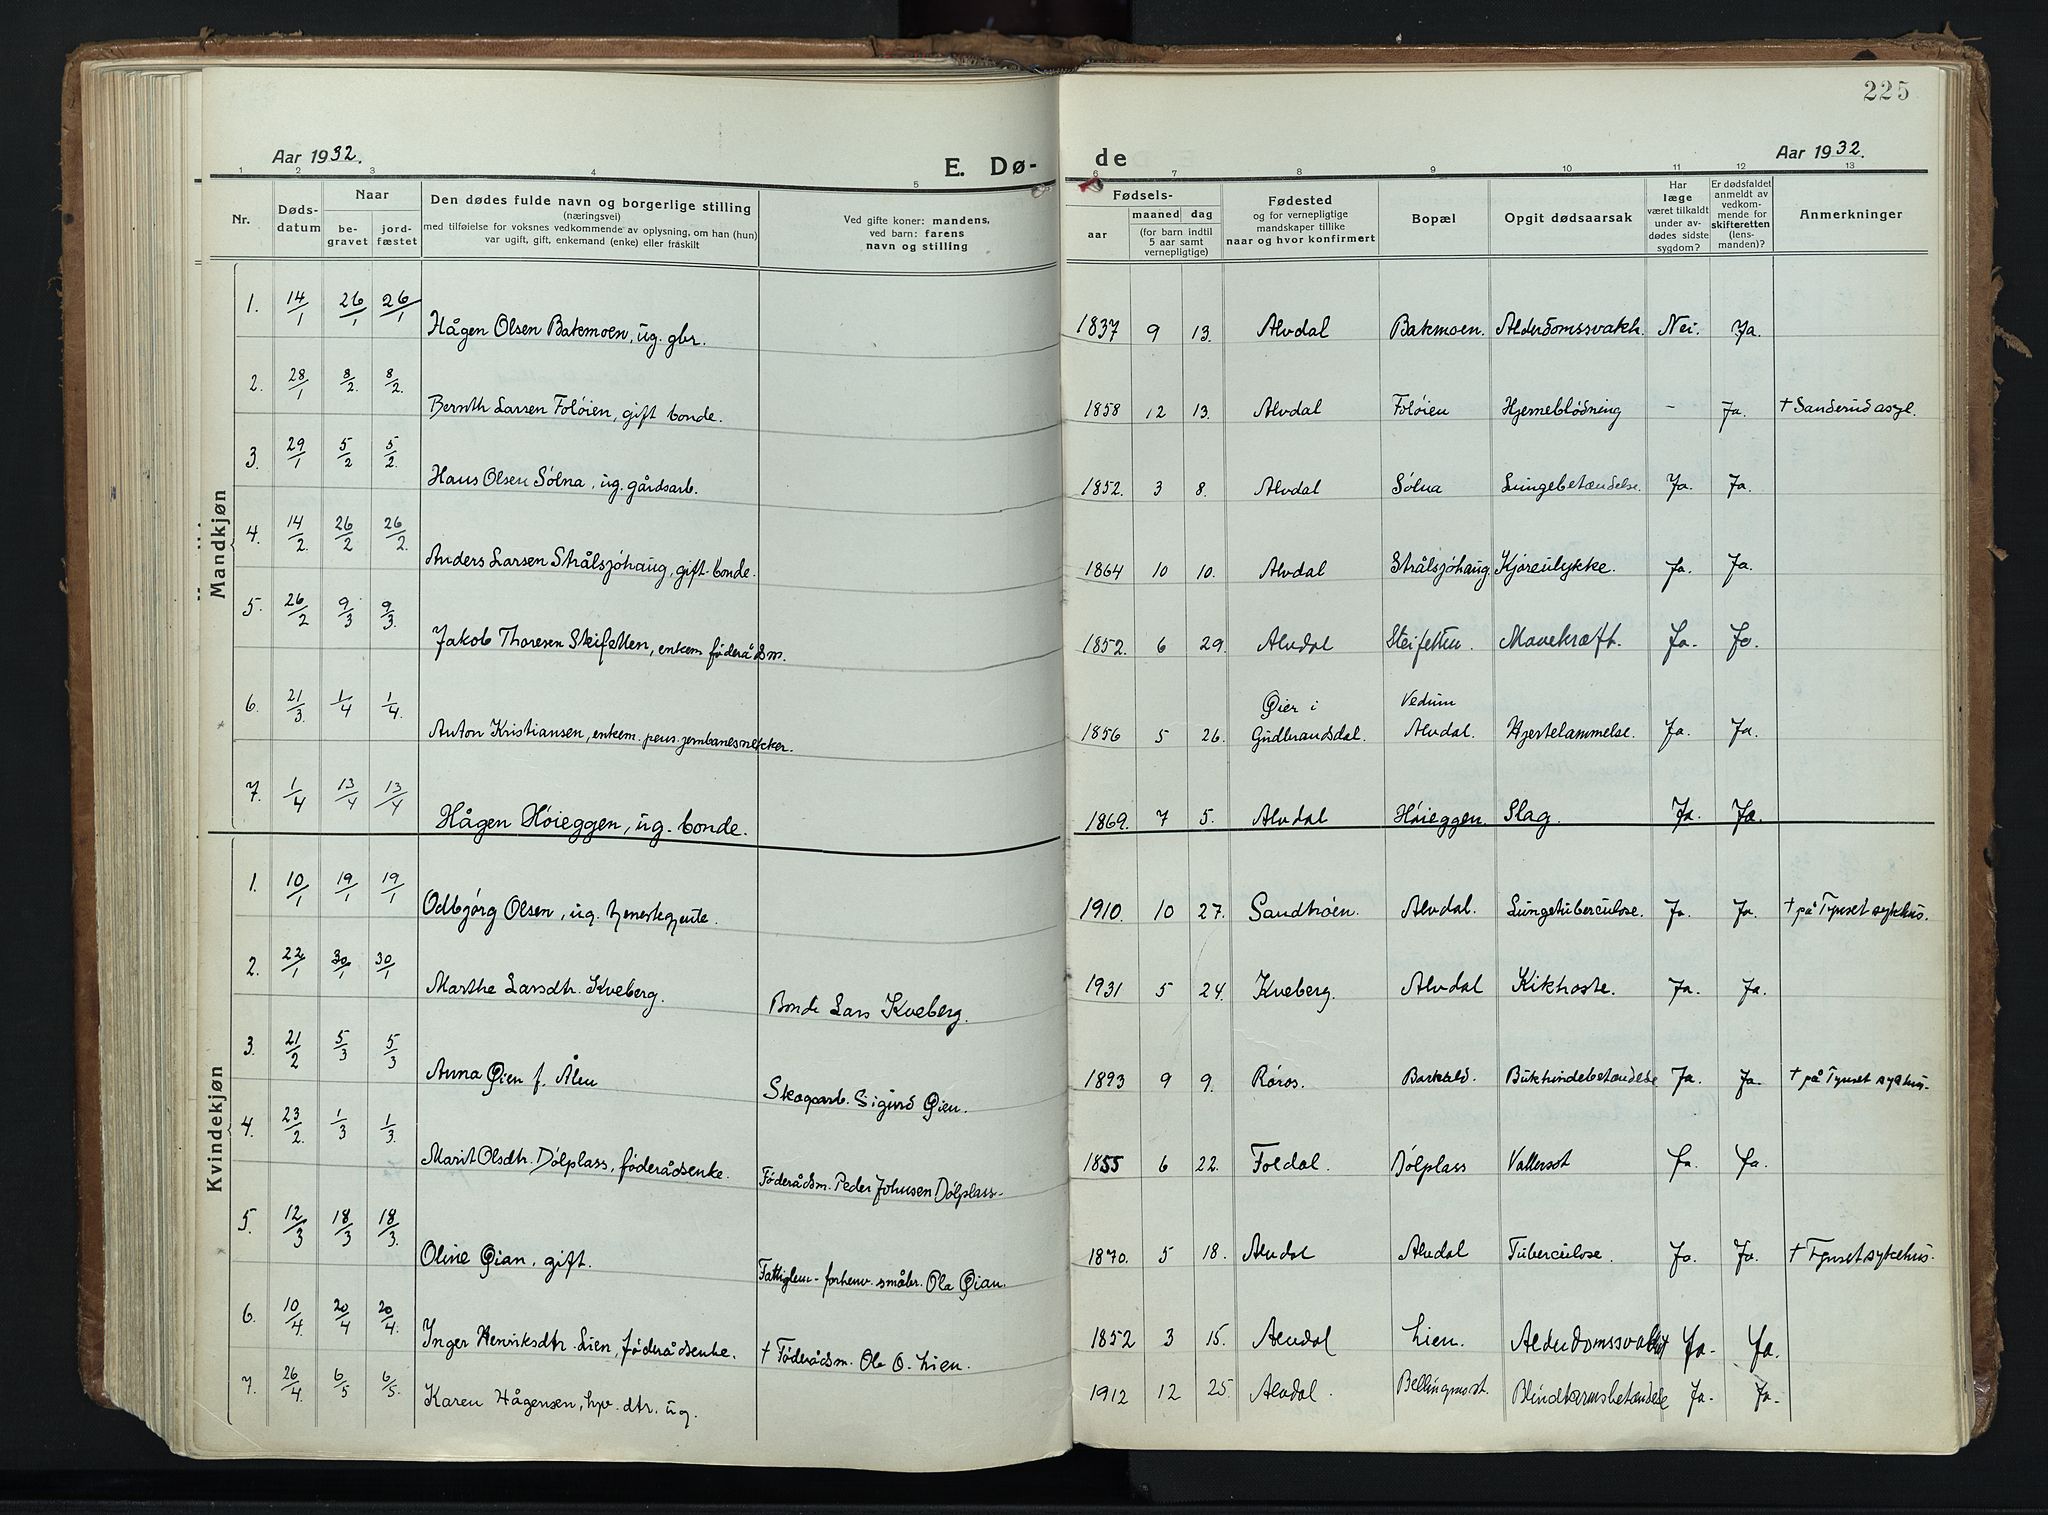 225
Aar 1932.
E. Dø-
de
Aar 1932.
1 2 3 4 5 6 7 8 9 10 11 12 13
Nr.
Døds-
datum
Naar
be-
gravet
jord-
fæstet
Den dødes fulde navn og borgerlige stilling
(næringsvei)
med tilføielse for voksnes vedkommende av oplysning, om han (hun)
var ugift, gift, enkemand (enke) eller fraskilt
Ved gifte koner: mandens,
ved barn: farens
navn og stilling
Fødsels-
aar
maaned
dag
(for barn indtil
5 aar samt
vernepligtige)
Fødested
og for vernepligtige
mandskaper tillike
naar og hvor konfirmert
Bopæl
Opgit dødsaarsak
Har
læge
været tilkaldt
under av-
dødes sidste
sygdom?
Er dødsfaldet
anmeldt av
vedkom-
mende for
skifteretten
(lens-
manden)?
Anmerkninger
Mandkjøn
1. 14/1 26/1 26/1 Hågen Olsen Bakmoen, ug. gbr. 1837 9 13. Alvdal Bakmoen. Alderdomssvakh. Nei. Ja.
2. 28/1 8/2. 8/2. Bernth Larsen Foløien, gift bonde. 1858 12 13. Alvdal Foløien Hjerneblødning - Ja. † Sanderud asyl.
3. 29/1 5/2 5/2. Hans Olsen Sølna, ug. gårdsarb. 1852. 3 8. Alvdal Sølna Lungebetændelse. Ja. Ja.
4. 14/2. 26/2 26/2. Anders Larsen Strålsjøhaug, gift bonde. 1864 10 10. Alvdal Strålsjøhaug. Kjøreulykke. Ja. Ja.
5. 26/2 9/3 9/3. Jakob Thoresen Steifetten, enkem. føderådsm. 1852. 6 29. Alvdal Steifetten. Mavekræft. Ja. Ja.
6. 21/3. 1/4 1/4. Anton Kristiansen, enkem. pens. jernbanesnekker. 1856 5 26. Øier i Gudbrandsdal. Vedum Alvdal. Hjertelammelse. Ja. Ja.
7. 1/4 13/4 13/4 Hågen Høieggen, ug. bonde. 1869. 7 5. Alvdal Høieggen. Slag. Ja. Ja.
Kvindekjøn
1. 10/1 19/1 19/1 Odbjørg Olsen, ug. tjenestejente. 1910. 10 27. Sandtrøen. Alvdal. Lungetuberculose. Ja. Ja. † på Tynset sykehus.
2. 22/1 30/1 30/1 Marthe Larsdtr. Kveberg. Bonde Lars Kveberg. 1931 5 24. Kveberg. Alvdal Kikhoste. Ja. Ja.
3. 21/2 5/3 5/3 Anna Øien f. Ålen Skogsarb. Sigurd Øien. 1893 9 9. Røros. Barkald. Bukhindebetændelse Ja. Ja. † på Tynset sykehus.
4. 23/2. 1/3 1/3. Marit Olsdtr. Dølplass, føderådsenke. Føderådsm. Peder Johnsen Dølplass. 1855 6 22. Foldal. Dølplass Vattersot Ja. Ja.
5. 12/3 18/3 18/3. Oline Øian, gift. Fattiglem - forhenv. småbr. Ola Øian. 1870. 5 18. Alvdal Alvdal Tuberculose. Ja. Ja. † Tynset sykehus.
6. 10/4. 20/4 20/4. Inger Henriksdtr. Lien, føderådsenke. † Føderådsm. Ole O. Lien. 1852 3 15. Alvdal Lien. Alderdomssvakhet Ja. Ja.
7. 26/4 6/5 6/5. Karen Hågensen, hpv. dtr. ug. 1912 12 25. Alvdal. Bellingmost. Blindtarmsbetændelse Ja. Ja.